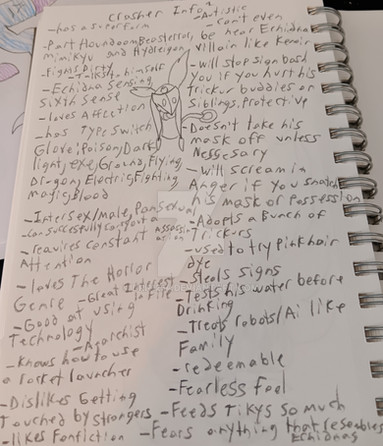 Crasher Info
-Artistic
-has a super form
-can't even
be near Echidna
Villain like Kemir
-Part Houndoom Beosterrol,
Mimikyu and Hydreigon
-Fights Dirty
-Talks to himself
-Echidna Sensing
Sixth Sense
-loves Affection
-has Type Switch
Glove: Poison, Dark,
light, exe, Ground, Flying,
Dragon, Electric, Fighting
magic, Blood
-InterSex/Male, Pansexual
-can successfully
-reavires constant
Attention
-loves The Horror
Genre
-Great Interest
In Fire
-Good at using
Technology
-Anarchist
-Knows how to use
a rocket launcher
-Dislikes Getting
touched by strangers
-likes Fanfiction
-will stop sign bash
you if you hurt his
Trickur buddies or
Siblings, Protective
-Doesn't take his
mask off unless
Nessesary
-will scream in
Anger if you snatch
his mask or possession
-Adopts a Bunch of
Trickers
-used to try Pink hair
dye
-Steals signs
-Tests his water before
Drinking
-Treats robots/Ai like
Family
-redeemable
-Fearless fool
-Feeds Tikys so much
-Fears anything that resembles
Echidnas